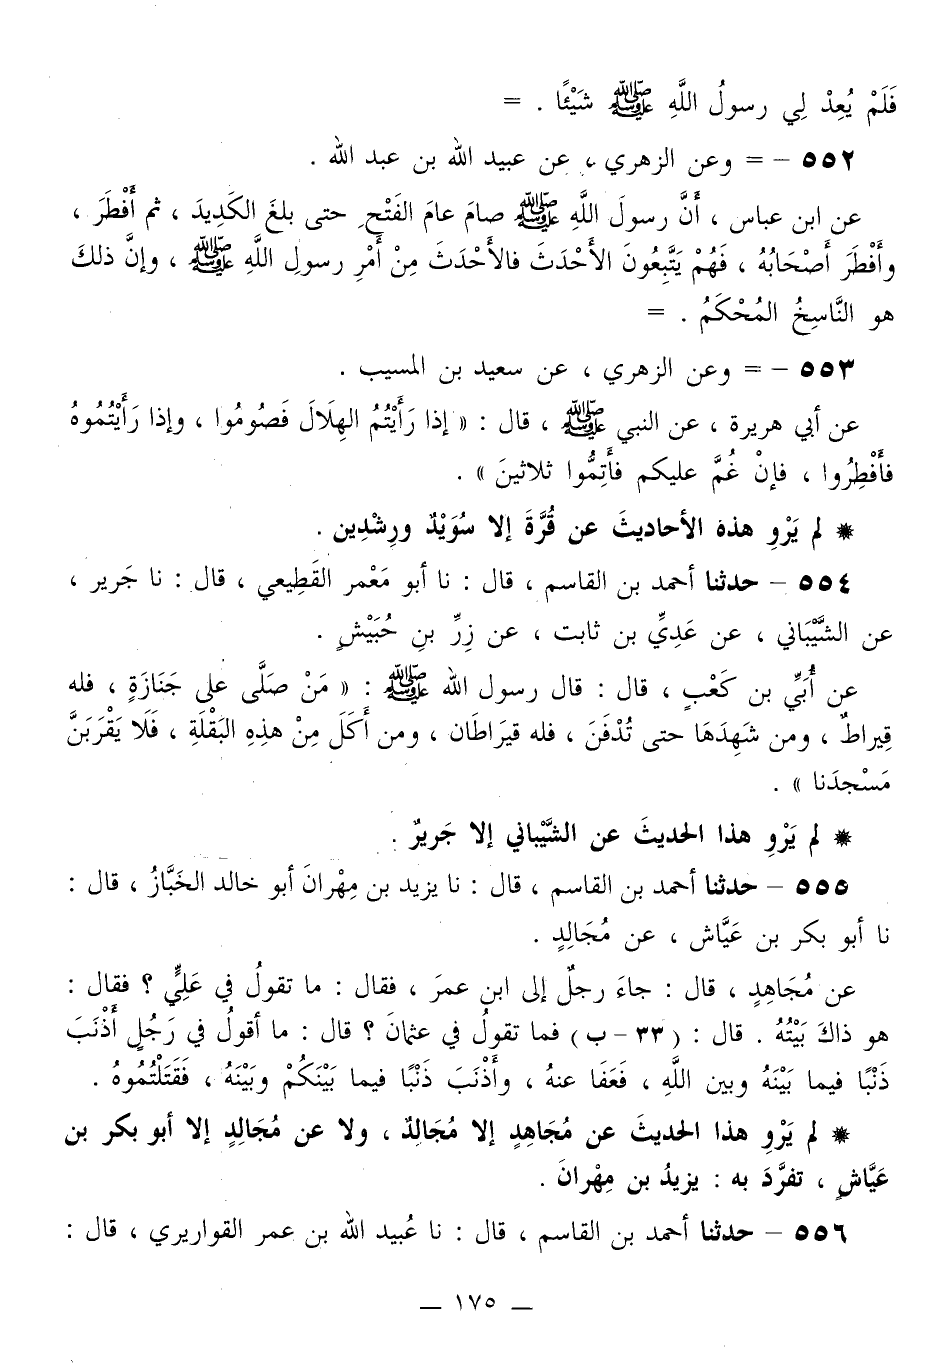 فَلَمْ يُعِدْ لِي رسولُ اللَّهِ ﷺ شَيْئًا . =
٥٥٢ – = وعن الزهري ، عن عبيد الله بن عبد الله .
عن ابن عباس ، أَنَّ رسولَ اللَّهِ ﷺ صامَ عامَ الفَتْحِ حتى بلغَ الكَدِيدَ ، ثم أَفْطَرَ ،
وأَفْطَرَ أَصْحَابُهُ ، فَهُمْ يَتَّبِعُونَ الأَحْدَثَ فالأَحْدَثَ مِنْ أَمْرِ رسولِ اللَّهِ ﷺ ، وإنَّ ذلكَ
هو النَّاسِخُ المُحْكَمُ . =
٥٥٣ – = وعن الزهري ، عن سعيد بن المسيب .
عن أبي هريرة ، عن النبي ﷺ ، قال : « إذا رَأَيْتُمُ الهِلَالَ فَصُومُوا ، وإذا رَأَيْتُمُوهُ
فأَفْطِرُوا ، فإنْ غُمَّ عليكم فأَتِمُّوا ثلاثينَ » .
* لم يَرْوِ هذه الأحاديثَ عن قُرَّةَ إلا سُوَيْدٌ ورِشْدِين .
٥٥٤ – حدثنا أحمد بن القاسم ، قال : نا أبو مَعْمر القَطِيعي ، قال : نا جَرير ،
عن الشَّيْبَاني ، عن عَدِيِّ بن ثابت ، عن زِرِّ بنِ حُبَيْشٍ .
عن أُبَيِّ بن كَعْبٍ ، قال : قال رسول الله ﷺ : « مَنْ صَلَّى على جَنَازَةٍ ، فله
قِيراطٌ ، ومن شَهِدَهَا حتى تُدْفَنَ ، فله قيرَاطَان ، ومن أَكَلَ مِنْ هذِهِ البَقْلَةِ ، فَلَا يَقْرَبَنَّ
مَسْجدَنا » .
* لم يَرْوِ هذا الحديثَ عن الشَّيْباني إلا جَريرٌ .
٥٥٥ – حدثنا أحمد بن القاسم ، قال : نا يزيد بن مِهْرانَ أبو خالد الخَبَّازُ ، قال :
نا أبو بكر بن عَيَّاش ، عن مُجَالِدٍ .
عن مُجَاهِدٍ ، قال : جاءَ رجلٌ إلى ابنِ عمرَ ، فقال : ما تقولُ في عَلِيٍّ ؟ فقال :
هو ذاكَ بَيْتُهُ . قال : ( ٣٣ – ب ) فما تقولُ في عثمانَ ؟ قال : ما أقولُ في رَجُلٍ أَذْنَبَ
ذَنْبًا فيما بَيْنَهُ وبين اللَّهِ ، فَعَفَا عنهُ ، وأَذْنَبَ ذَنْبًا فيما بَيْنَكُمْ وبَيْنَهُ ، فَقَتَلْتُمُوهُ .
* لم يَرْوِ هذا الحديثَ عن مُجَاهِدٍ إلا مُجَالِدٌ ، ولا عن مُجَالِدٍ إلا أبو بكر بن
عَيَّاشٍ ، تفرَّدَ به : يزيدُ بن مِهْرانَ .
٥٥٦ – حدثنا أحمد بن القاسم ، قال : نا عُبيد الله بن عمر القواريري ، قال :
– ١٧٥ –